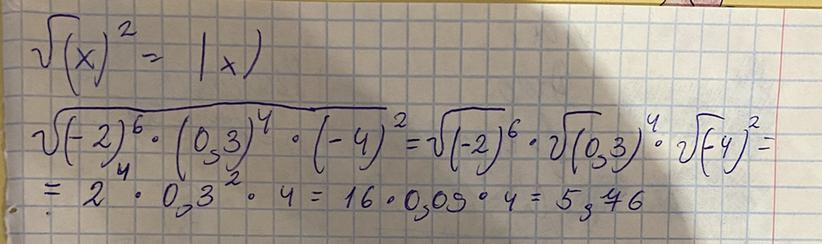 √(x)² = |x|
√(-2)⁶ · (0,3)⁴ · (-4)² = √(-2)⁶ · √(0,3)⁴ · √(-4)² =
= 2⁴ · 0,3² · 4 = 16 · 0,09 · 4 = 5,76